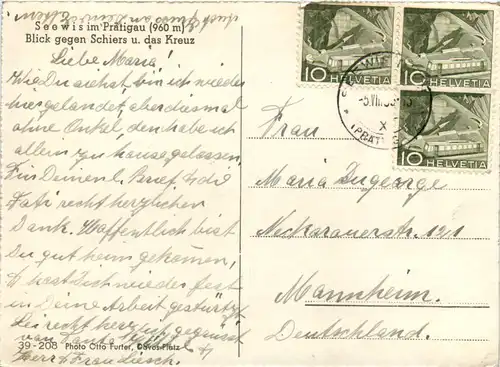 Seewis im Prätigau (960 m)
Blick gegen Schiers u. das Kreuz
Liebe Maria!
Wie Du siehst bin ich wieder
hier gelandet, aber diesmal
ohne Onkel, den habe ich
allein zu hause gelassen.
Für Deinen l. Brief &
Foti recht herzlichen
Dank. Hoffentlich bist
Du gut heim gekommen,
& hast Dich wieder fest
in Deine Arbeit gestürzt.
Sei recht herzlich gegrüsst
von
Herr & Frau
39-208 Photo Otto Furter, Davos-Platz
10 HELVETIA
10 HELVETIA
10 HELVETIA
Frau
Maria Dugeorge
Neckarauerstr. 121
Mannheim.
Deutschland.